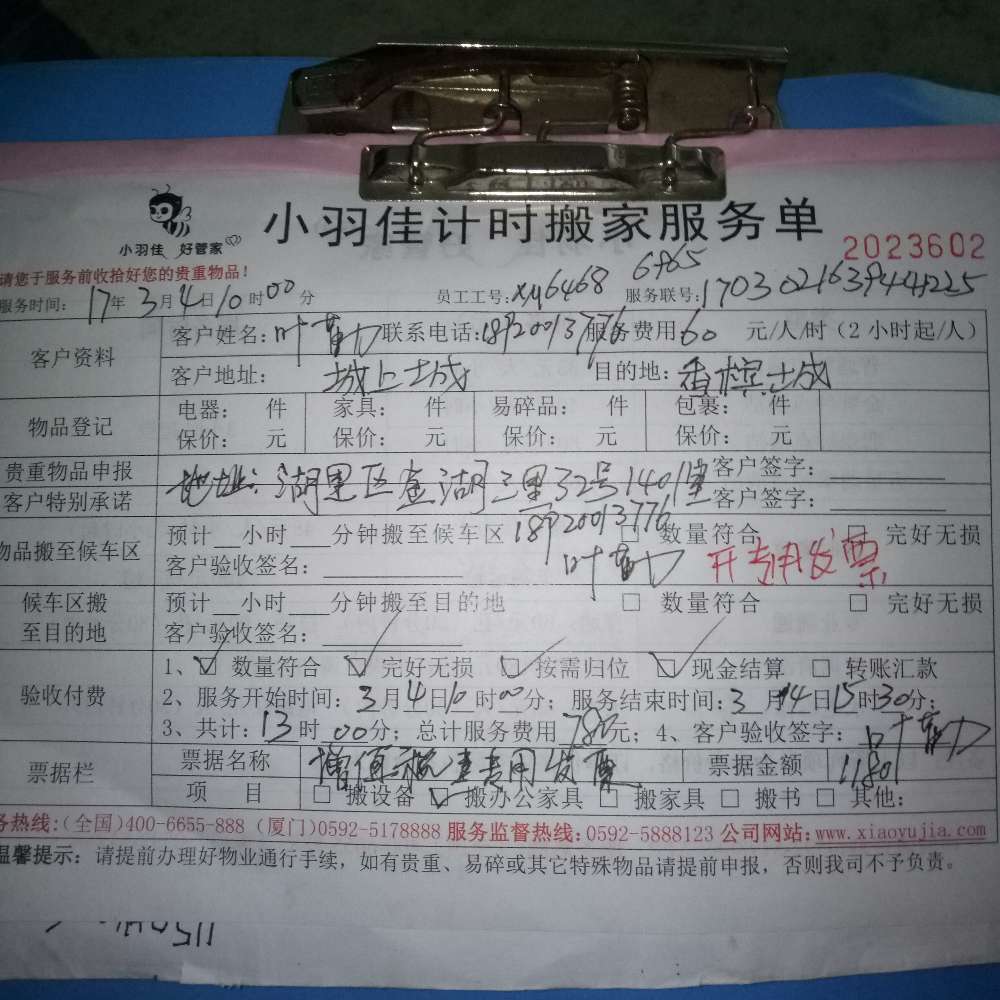 小羽佳 好管家
小羽佳计时搬家服务单
2023602
请您于服务前收拾好您的贵重物品!
6965
服务时间: 17年 3月4日10时00分 员工工号:XM6468 服务联号:
客户资料
客户姓名:叶 联系电话:18920013776 服务费用60 元/人/时(2小时起/人)
客户地址: 城上城 目的地: 香槟城
物品登记
电器: 件 家具: 件 易碎品: 件 包裹: 件
保价: 元 保价: 元 保价: 元 保价: 元
贵重物品申报 客户签字:
地址: 湖里区 湖三里32号1401室
客户特别承诺 客户签字:
18920013776
物品搬至候车区
预计__小时___分钟搬至候车区 □ 数量符合 □ 完好无损
客户验收签名: 叶 开专用发票
候车区搬至目的地
预计__小时___分钟搬至目的地 □ 数量符合 □ 完好无损
客户验收签名:
验收付费
1、☑ 数量符合 ☑ 完好无损 ☑ 按需归位 ☑ 现金结算 □ 转账汇款
2、服务开始时间: 3月4日10时00分; 服务结束时间: 3月14日15时30分;
3、共计: 13时00分; 总计服务费用780元; 4、客户验收签字: 叶
票据栏
票据名称 增值税专用发票 票据金额 1180
项 目 □ 搬设备 ☑ 搬办公家具 □ 搬家具 □ 搬书 □ 其他:
务热线:(全国)400-6655-888 (厦门)0592-5178888 服务监督热线:0592-5888123 公司网站:www.xiaoyujia.com
温馨提示: 请提前办理好物业通行手续,如有贵重、易碎或其它特殊物品请提前申报,否则我司不予负责。